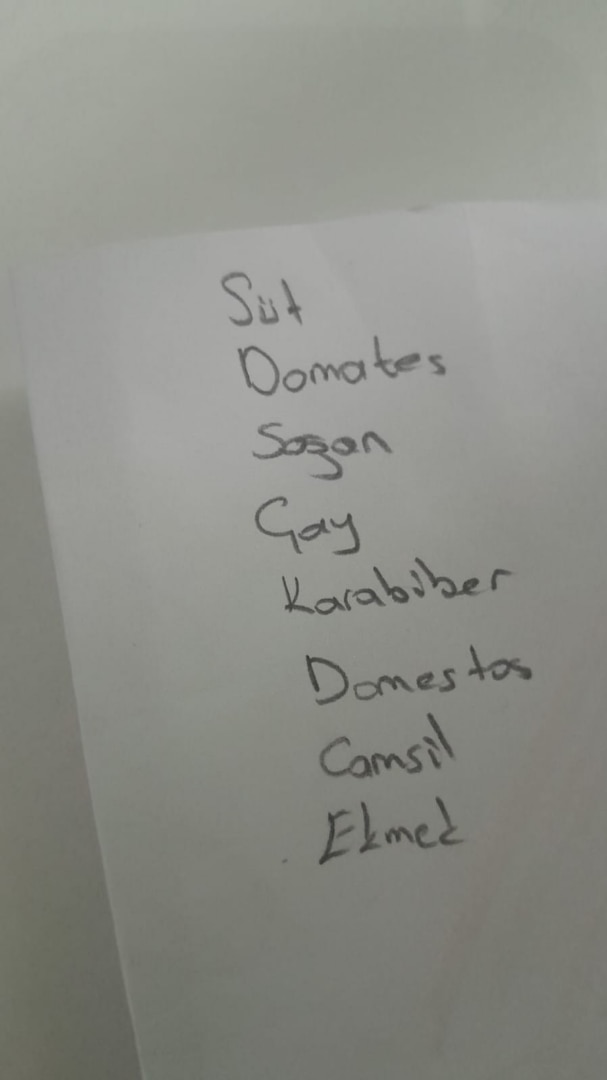 Süt
Domates
Sogan
Çay
Karabiber
Domestos
Camsil
Ekmek